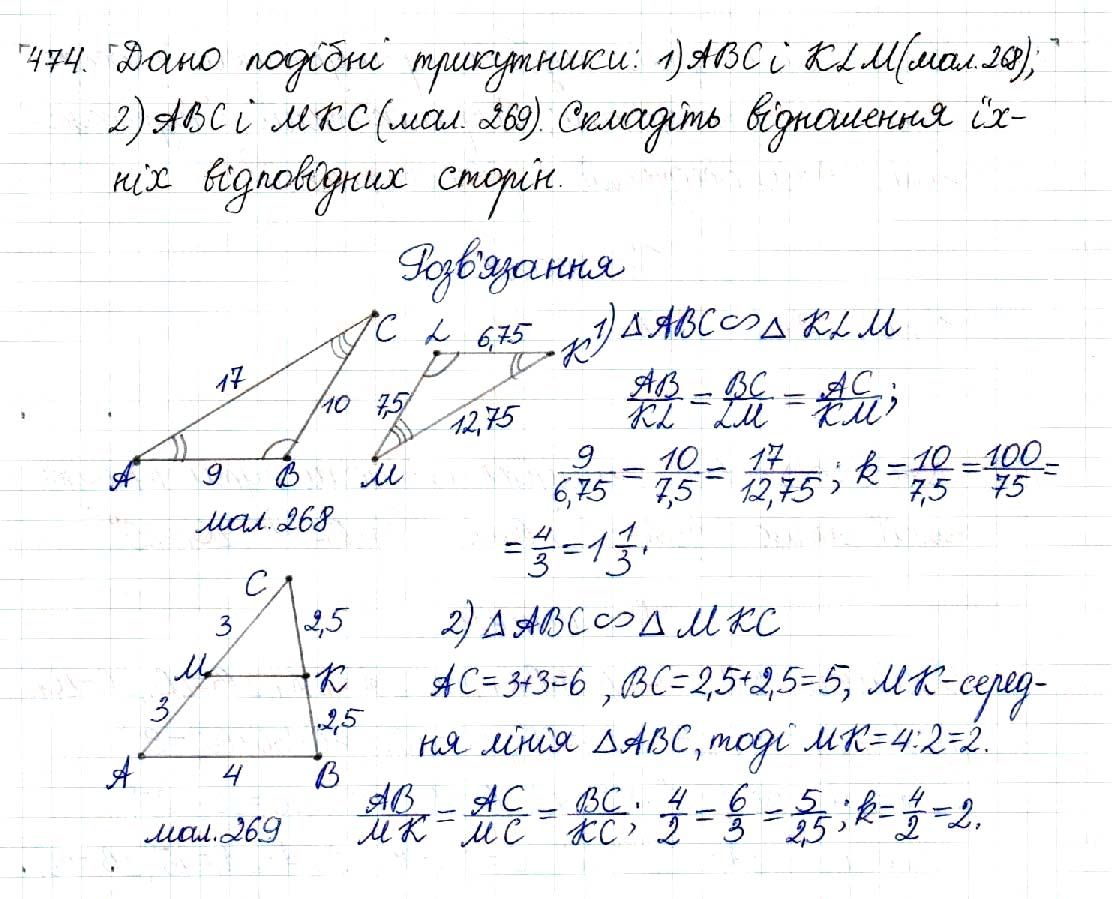 474. Дано подібні трикутники: 1) ABC і KLM (мал. 268);
2) ABC і MKC (мал. 269). Складіть відношення їх-
ніх відповідних сторін.
Розв'язання
C
L
6,75
K
17
10
7,5
12,75
A
9
B
M
мал. 268
1) △ABC ∽ △KLM
AB/KL = BC/LM = AC/KM;
9/6,75 = 10/7,5 = 17/12,75; k = 10/7,5 = 100/75 =
= 4/3 = 1 1/3.
C
3
2,5
M
K
3
2,5
A
4
B
мал. 269
2) △ABC ∽ △MKC
AC = 3+3=6, BC = 2,5+2,5=5, MK-серед-
ня лінія △ABC, тоді MK=4:2=2.
AB/MK = AC/MC = BC/KC; 4/2 = 6/3 = 5/2,5; k = 4/2 = 2.